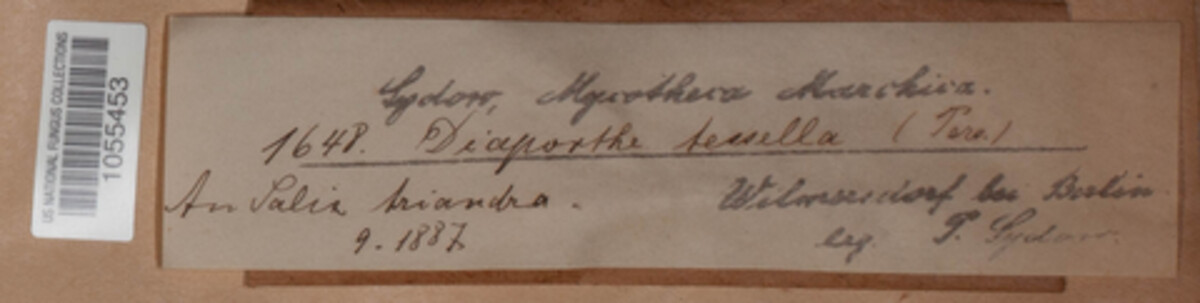 US NATIONAL FUNGUS COLLECTIONS
1055453
Sydow, Mycotheca Marchica.
1648. Diaporthe tessella (Pers.)
An Salix triandra.
9. 1887
Wilmersdorf bei Berlin
leg. P. Sydow.